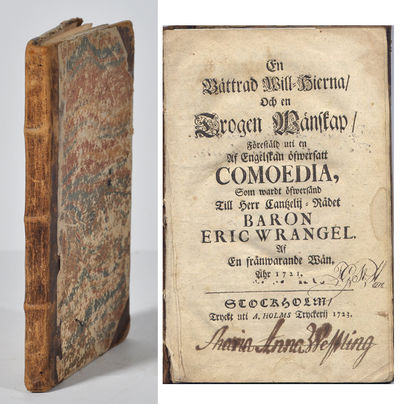 En
Båttrad Will-Hierna/
Och en
Trogen Wånskap/
Förestäld uti en
Af Engelskan öfwersatt
COMOEDIA,
Som wardt öfwersänd
Till Herr Cantzelij-Rådet
BARON
ERIC WRANGEL.
Af
En frånwarande Wån.
Åhr 1721.
STOCKHOLM/
Tryckt uti A. HOLMS Tryckerij 1723.
Maria Anna Wessling